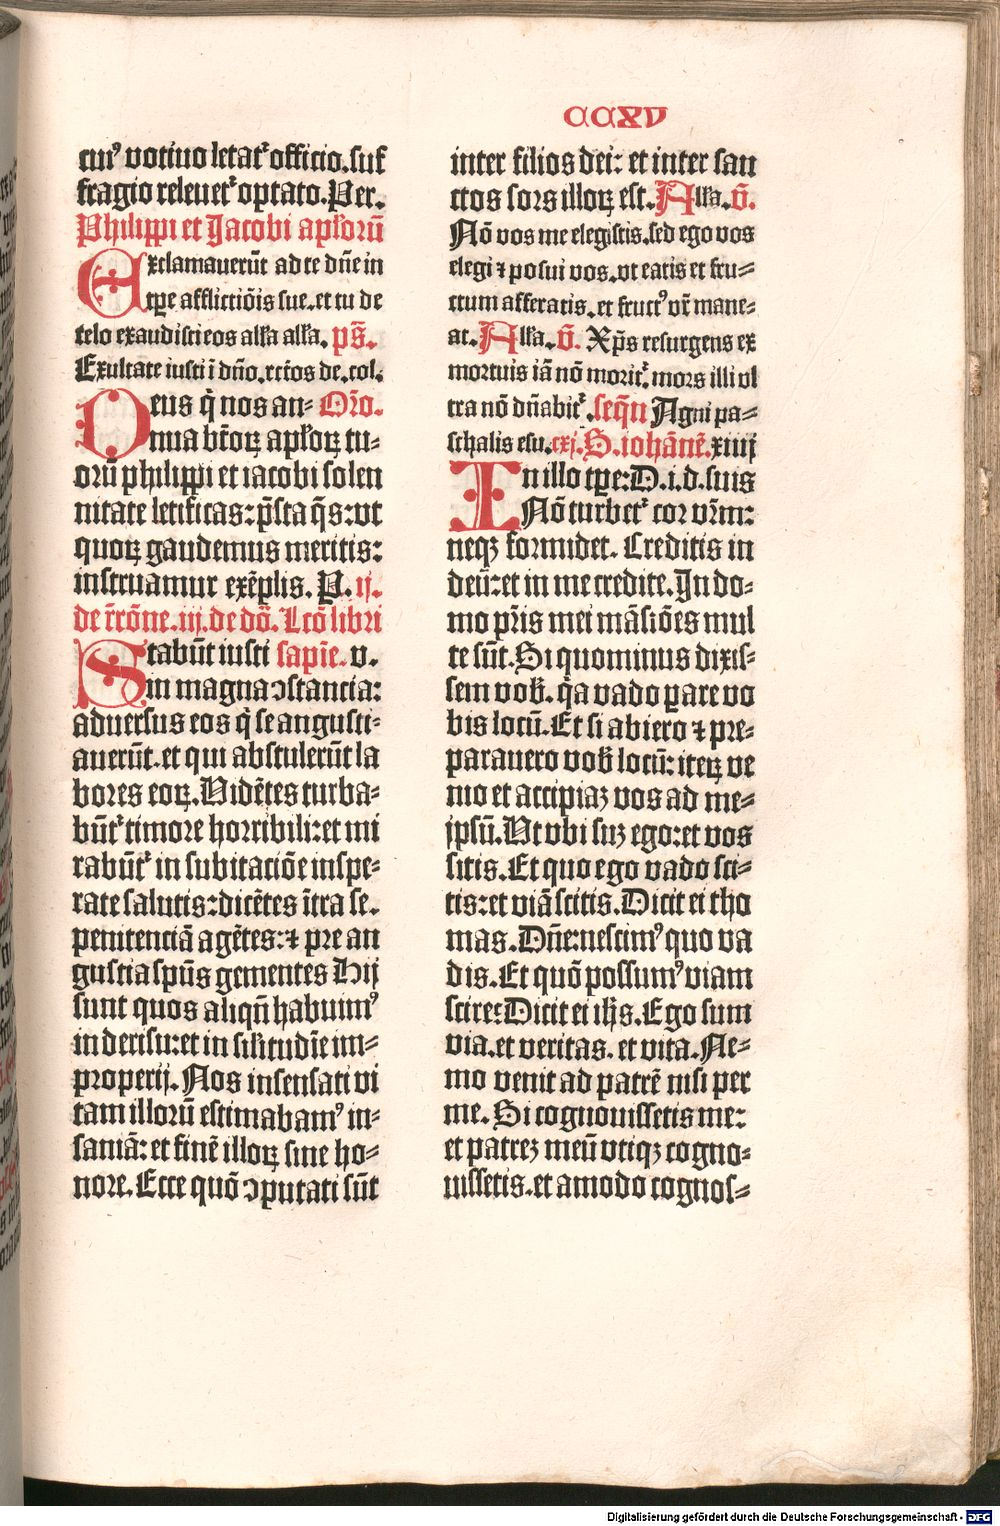 CCXV
cui⁹ votiuo letat᷑ officio.suf
fragio releuet᷑ optato.Per.
Philippi et Jacobi apl̃orũ
Exclamauerũt ad te dñe in
tp̃e afflictiõis sue.et tu de
celo exaudisti eos all'a all'a. pš.
Exultate iusti ĩ dño.rctõs de.col.
Deus q̃ nos an⸗ Oro.
nua bt̃oꝝ apl̃oꝝ tu⸗
orũ philippi et iacobi solen
nitate letificas:p̃sta q̃s:vt
quoꝝ gaudemus meritis:
instruamur exẽplis. P. ij.
de r̃rõne.iij.de dõ. Lcõ libri
Stabũt iusti sapiẽ. v.
in magna ↄstancia:
aduersus eos q̃ se angusti⸗
auerũt.et qui abstulerũt la
bores eoꝝ.Vidẽtes turba⸗
bũt᷑ timore horribili:et mi
rabũt᷑ in subitaciõe inspe⸗
rate salutis:dicẽtes ĩtra se.
penitenciã agẽtes:⁊ pre an
gustia sp̃ũs gementes Hij
sunt quos aliqñ habuim⁹
in derisu:et in sil̃itudĩe im⸗
properij. Nos insensati vi
tam illorũ estimabam⁹ in⸗
saniã: et finẽ illoꝝ sine ho⸗
nore. Ecce quõ ↄputati sũt
inter filios dei: et inter san
ctos sors illoꝝ est. All'a. ṽ.
Nõ vos me elegistis.sed ego vos
elegi ⁊ posui vos.vt eatis et fru⸗
ctum afferatis. et fruct⁹ vr̃ mane⸗
at. All'a. ṽ. Xp̃s resurgens ex
mortuis iã nõ morit᷑ mors illi vl
tra nõ dñabit᷑. seq̃u Agni pa⸗
schalis esu. cxj. S. iohãnẽ. xiiij
In illo tp̃e: D.i.d.suis
Nõ turbet᷑ cor vr̃m:
neqꝫ formidet. Creditis in
deũ:et in me credite. In do⸗
mo pr̃is mei mãsiões mul
te sũt. Si quominus dixis⸗
sem vob̃. q̃a vado ꝑare vo
bis locũ. Et si abiero ⁊ pre⸗
parauero vob̃ locũ: iteꝝ ve
nio et accipiaꝫ vos ad me⸗
ip̃sũ. Vt vbi suꝫ ego:et vos
sitis. Et quo ego vado sci⸗
tis:et viã scitis. Dicit ei tho
mas. Dñe:nescim⁹ quo va
dis. Et quõ possum⁹ viam
scire: Dicit ei ih̃s. Ego sum
via.et veritas. et vita. Ne⸗
mo venit ad patrẽ nisi per
me. Si cognouissetis me:
et patreꝫ meũ vtiqꝫ cogno⸗
uissetis.et amodo cognos⸗
Digitalisierung gefördert durch die Deutsche Forschungsgemeinschaft - DFG